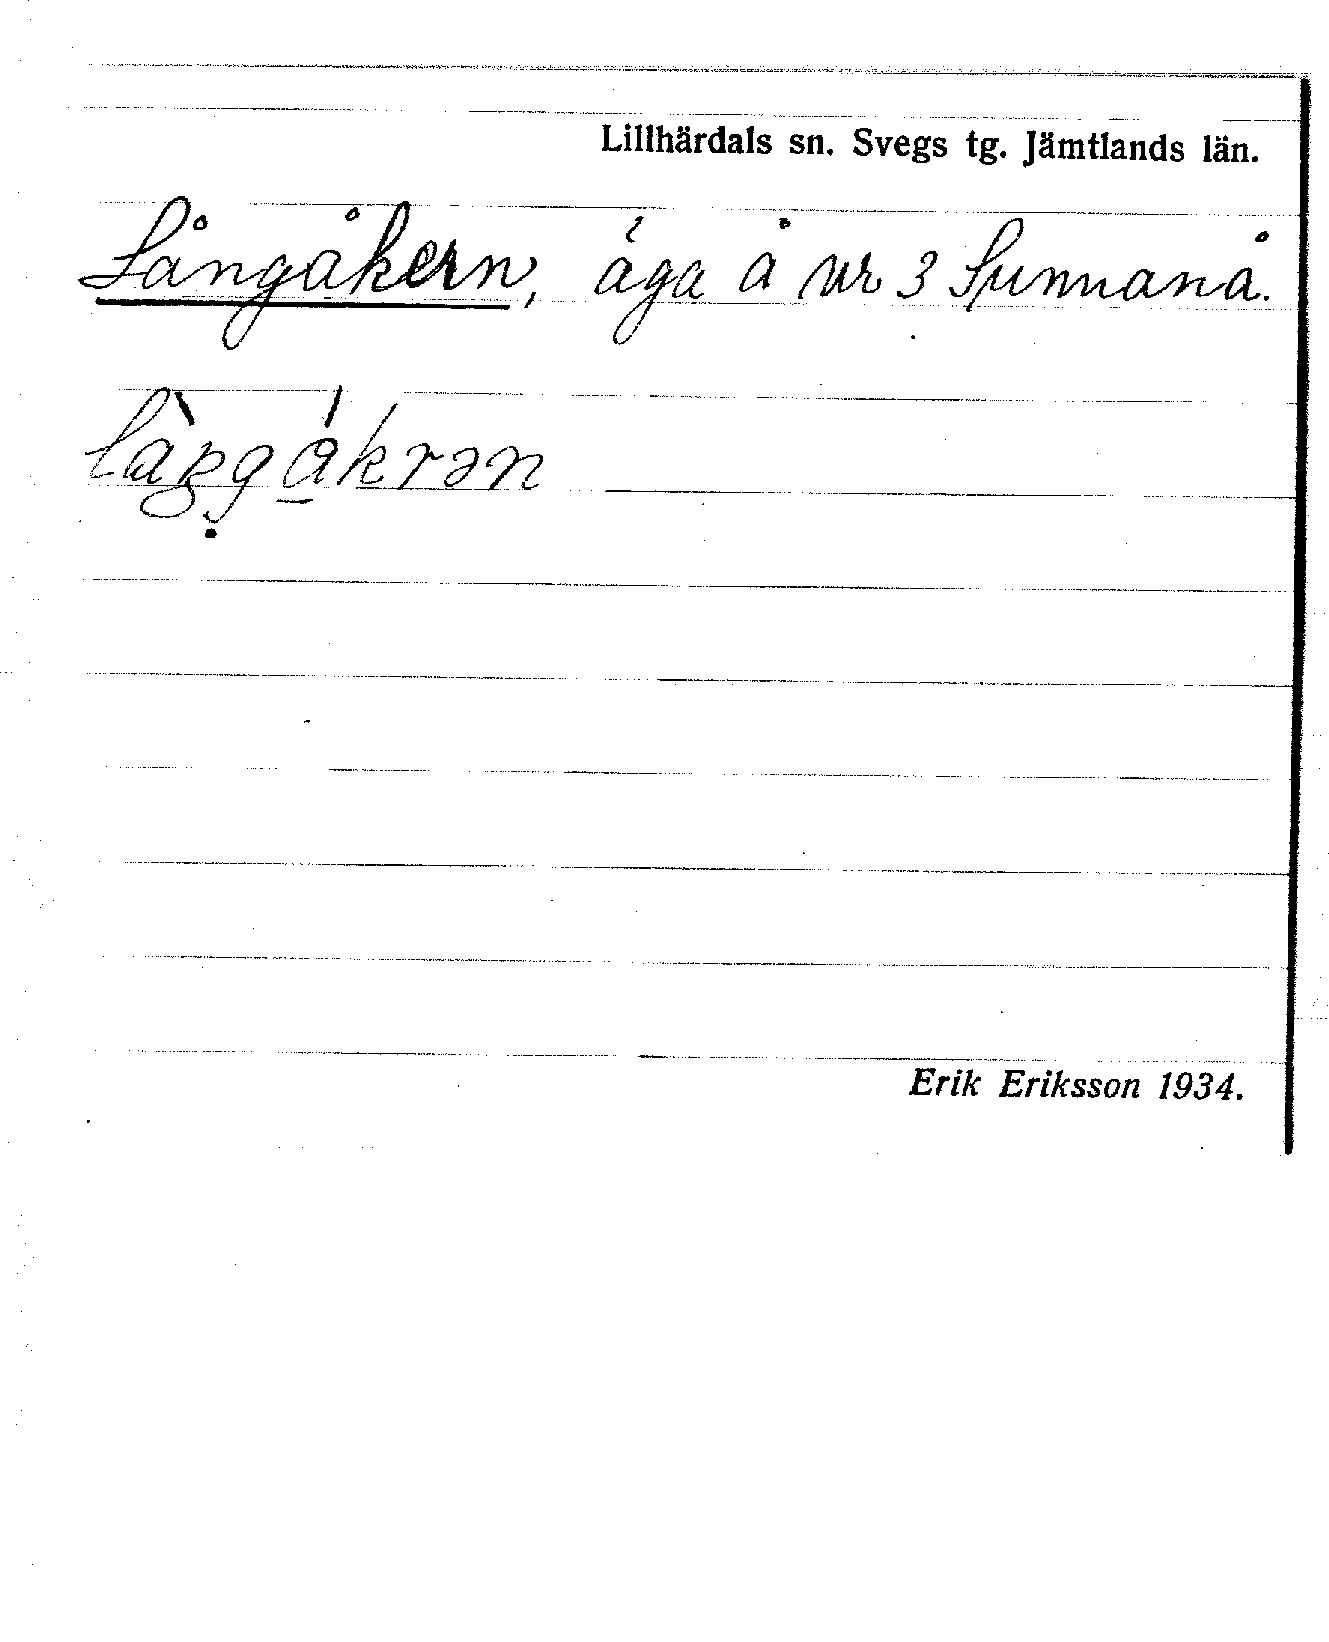 Lillhärdals sn. Svegs tg. Jämtlands län.
Långåkern, äga å nr 3 Sunnanå.
Erik Eriksson 1934.